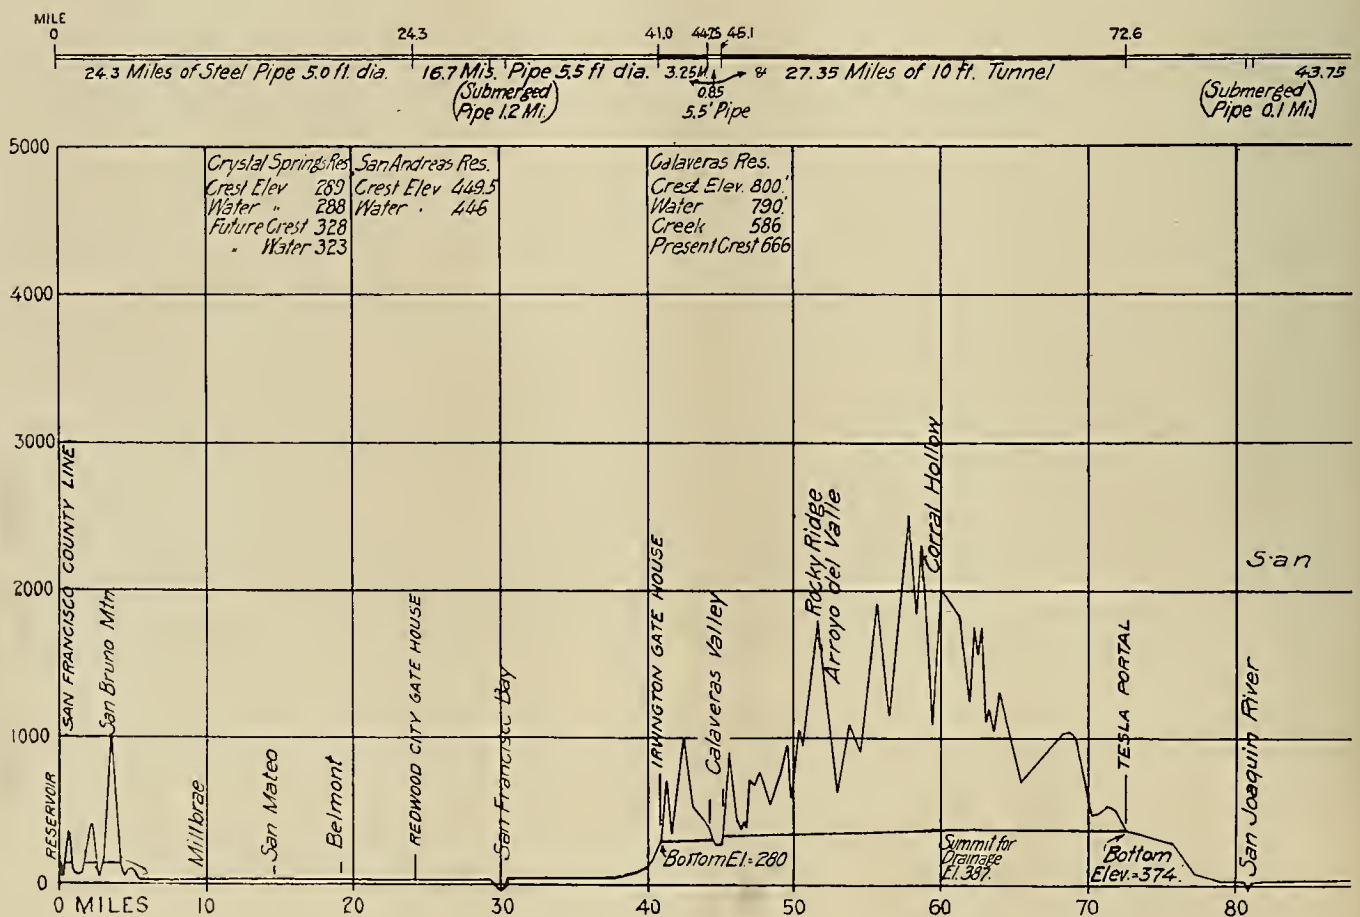 MILE
0 24.3 41.0 44.25 45.1 72.6
24.3 Miles of Steel Pipe 5.0 ft. dia. 16.7 Mis. Pipe 5.5 ft dia. 3.25M. & 27.35 Miles of 10 ft. Tunnel 43.75
(Submerged
Pipe 1.2 Mi.)
0.85
5.5' Pipe
(Submerged
Pipe 0.1 Mi.)
5000
4000
3000
2000
1000
0
Crystal Springs Res
Crest Elev 289
Water " 288
Future Crest 328
" Water 323
San Andreas Res.
Crest Elev 449.5
Water " 446
Calaveras Res.
Crest Elev. 800.'
Water 790.'
Creek 586
Present Crest 666
RESERVOIR
SAN FRANCISCO COUNTY LINE
San Bruno Mtn.
Millbrae
San Mateo
Belmont
REDWOOD CITY GATE HOUSE
San Francisco Bay
IRVINGTON GATE HOUSE
Calaveras Valley
Rocky Ridge
Arroyo del Valle
Corral Hollow
TESLA PORTAL
San Joaquin River
San
Bottom El.=280
Summit for
Drainage
El. 387.
Bottom
Elev.=374.
0 MILES 10 20 30 40 50 60 70 80